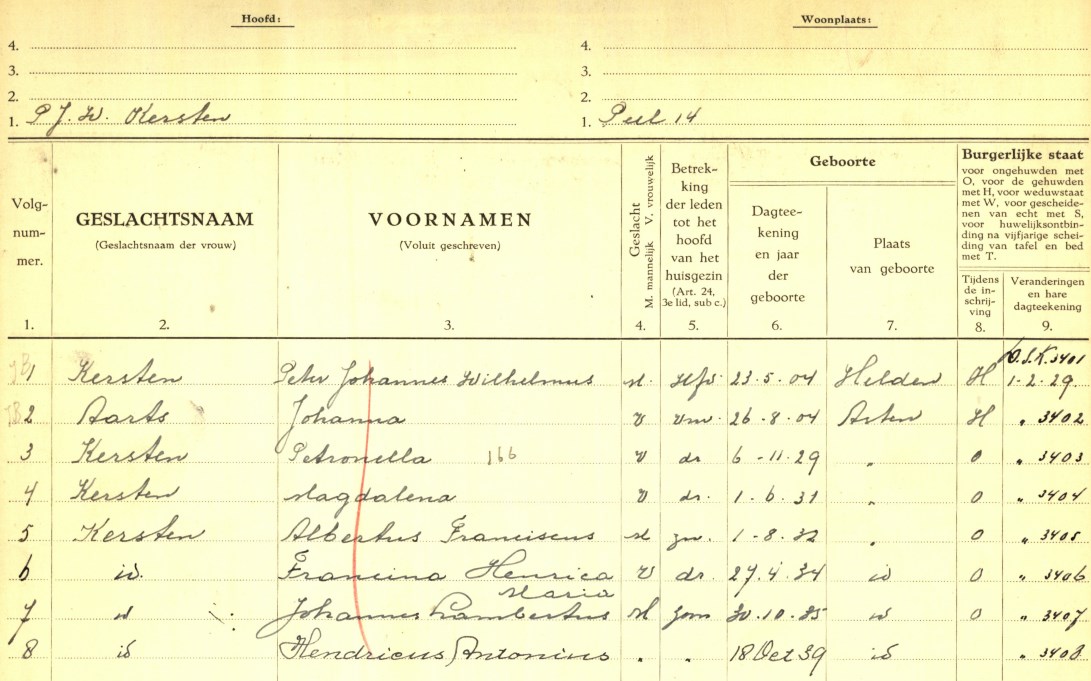 Hoofd: Woonplaats:
4. 4.
3. 3.
2. 2.
1. P J. W. Kersten 1. Peel 14
Volg-
num-
mer.
1.
GESLACHTSNAAM
(Geslachtsnaam der vrouw)
2.
VOORNAMEN
(Voluit geschreven)
3.
Geslacht
M. mannelijk V. vrouwelijk
4.
Betrek-
king
der leden
tot het
hoofd
van het
huisgezin
(Art. 24,
3e lid, sub c.)
5.
Geboorte
Dagtee-
kening
en jaar
der
geboorte
6.
Plaats
van geboorte
7.
Burgerlijke staat
voor ongehuwden met
O, voor de gehuwden
met H, voor weduwstaat
met W, voor gescheide-
nen van echt met S,
voor huwelijksontbin-
ding na vijfjarige schei-
ding van tafel en bed
met T.
Tijdens
de in-
schrij-
ving
8.
Veranderingen
en hare
dagteekening
9.
O.S.K. 3401
1 Kersten Peter Johannes Wilhelmus M. Hfd 23.5.04 Helden H 1-2-29
2 Aarts Johanna V vm. 26-8-04 Asten H " 3402
3 Kersten Petronella 166 V dr 6-11-29 " O " 3403
4 Kersten Magdalena V dr. 1.6.31 " O " 3404
5 Kersten Albertus Franciscus M zn. 1-8.32 " O " 3405
6 id. Francina Henrica V dr. 27.4.34 id O " 3406
Maria
7 id Johannes Lambertus M zoon 30.10.35 id O " 3407
8 id Hendricus Antonius " " 18 Oct 39 id " 3408